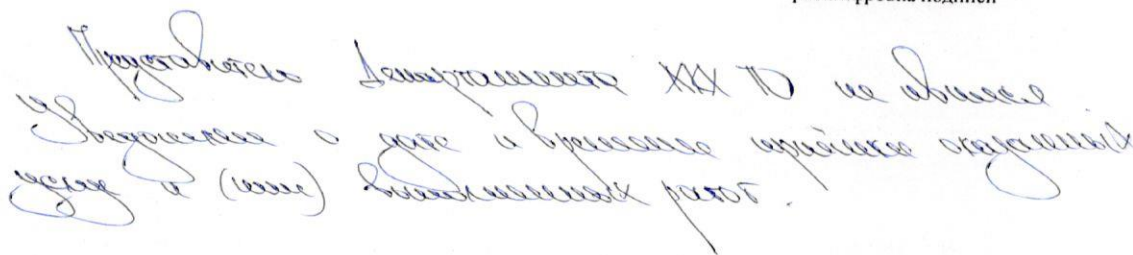 расшифровка подписи
Представитель Департамента ЖКХ ТО не явился.
Уведомление о дате и времени приёмки оказанных
услуг и (или) выполненных работ.